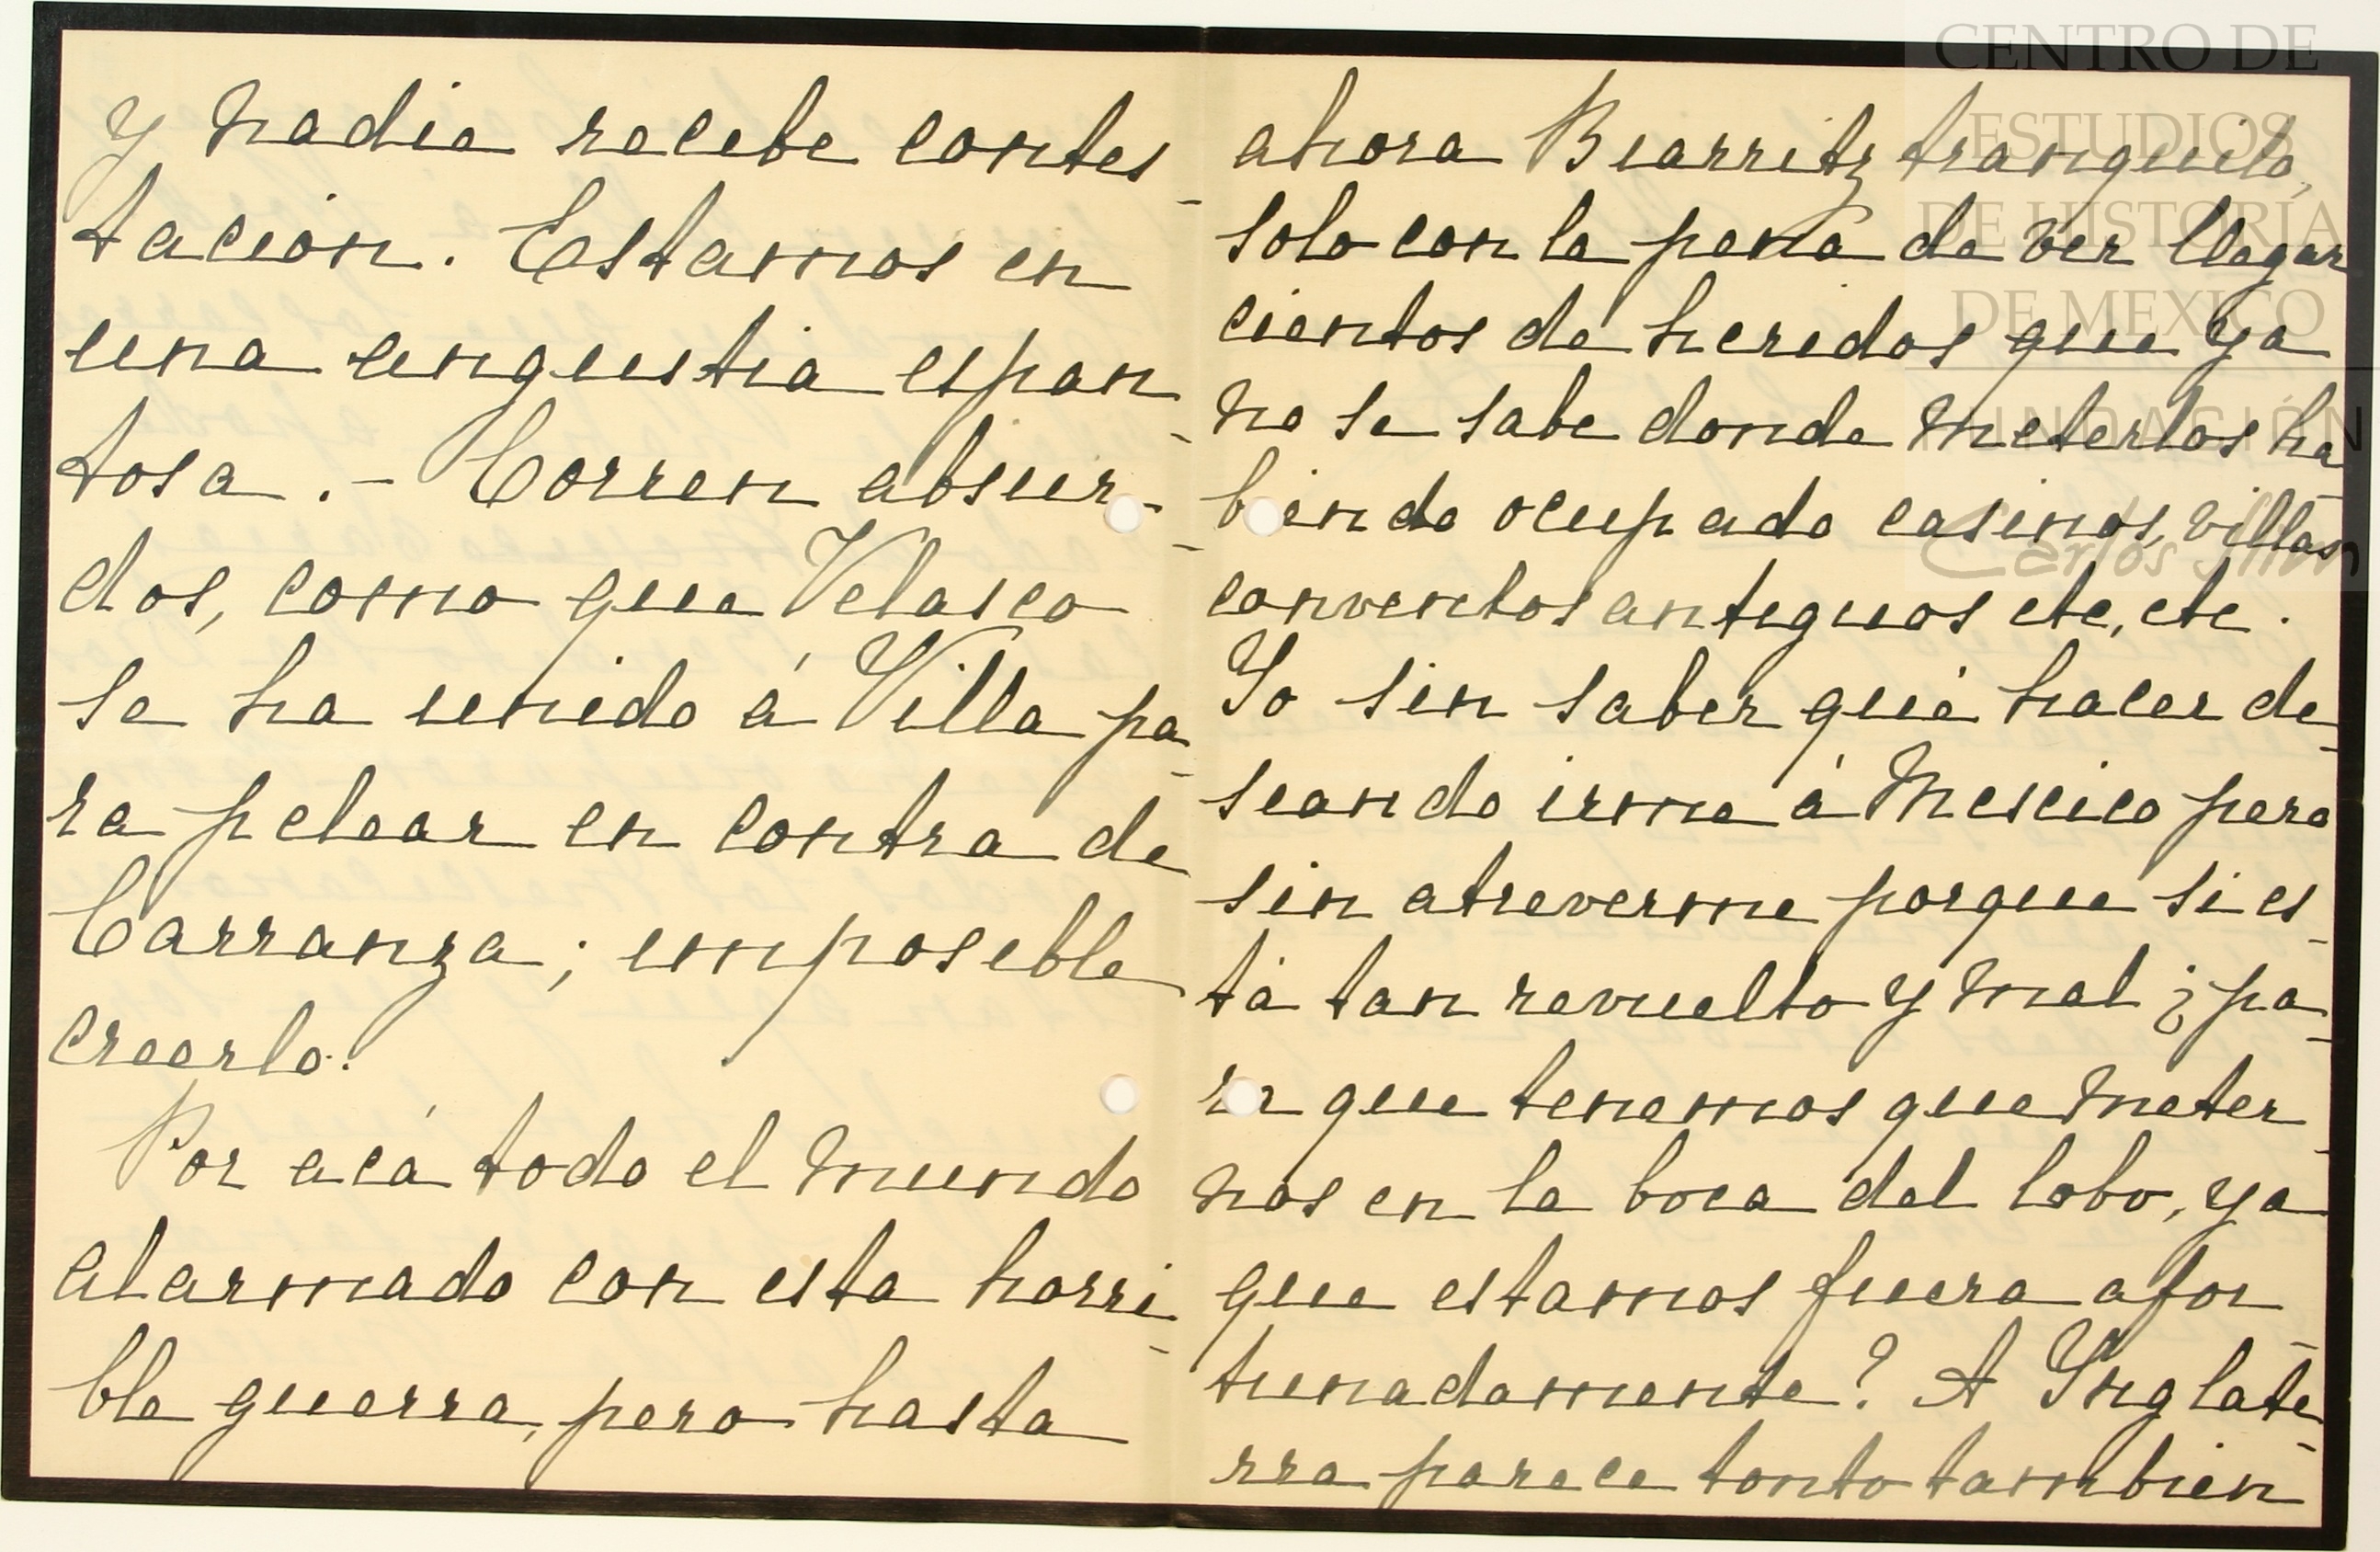 y nadie recibe contes-
tación. Estamos en
una angustia espan-
tosa.- Corren absur-
dos, como que Velasco
se ha unido á Villa pa-
ra pelear en contra de
Carranza; imposible
creerlo.
Por acá todo el mundo
alarmado con esta horri-
ble guerra, pero hasta
ahora Biarritz tranquilo,
solo con la pena de ver llegar
cientos de heridos que ya
no se sabe donde meterlos ha-
biendo ocupado casinos, villas
conventos antiguos etc, etc.
Yo sin saber qué hacer de-
seando irme á Mescico pero
sin atreverme porque si es-
tá tan revuelto y mal ¿pa-
ra que tenemos que meter-
nos en la boca del lobo, ya
que estamos fuera afor-
tunadamente? A Inglate-
rra parece tonto tambien
CENTRO DE
ESTUDIOS
DE HISTORIA
DE MEXICO
FUNDACIÓN
Carlos Slim